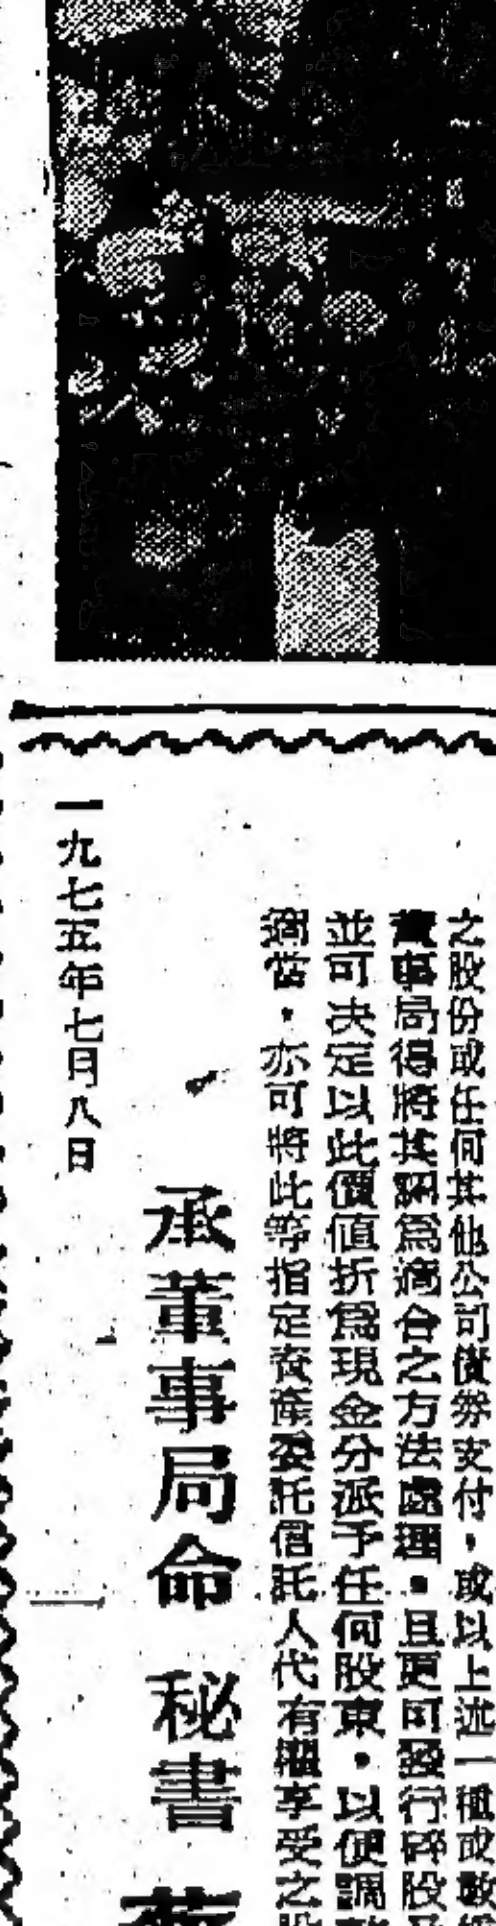 之股份或任何其他公司債券支付，或以上述一種或數
董事局得將其認爲適合之方法處理。且更可發行碎股
並可决定以此價值折爲現金分派予任何股東，以便調
適當，亦可將此等指定資產委託信託人代有權享受之股
承董事局命 秘書
一九七五年七月八日